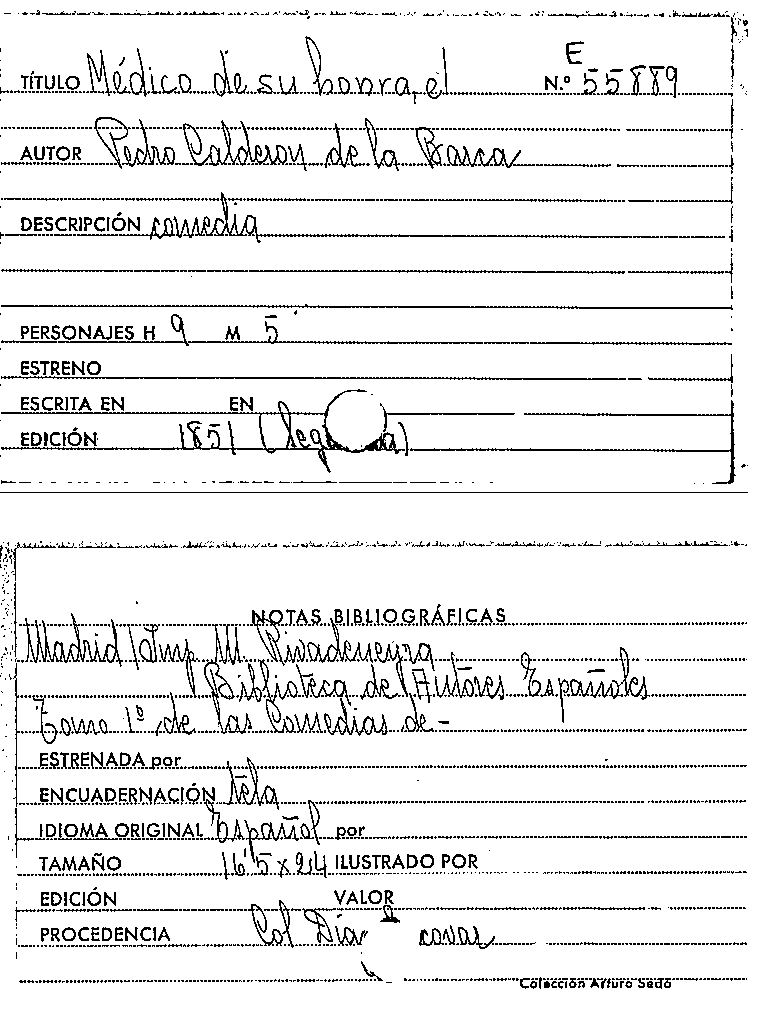 TÍTULO Médico de su honra, el E N.º 55889
AUTOR Pedro Calderon de la Barca
DESCRIPCIÓN comedia
PERSONAJES H 9 M 5
ESTRENO
ESCRITA EN EN
EDICIÓN 1851
NOTAS BIBLIOGRÁFICAS
Madrid Imp M. Rivadeneyra
Biblioteca de Autores Españoles
Tomo 1º de las Comedias de -
ESTRENADA por
ENCUADERNACIÓN tela
IDIOMA ORIGINAL Español por
TAMAÑO 16'5 x 24 ILUSTRADO POR
EDICIÓN VALOR
PROCEDENCIA Col
Colección Arturo Sedó